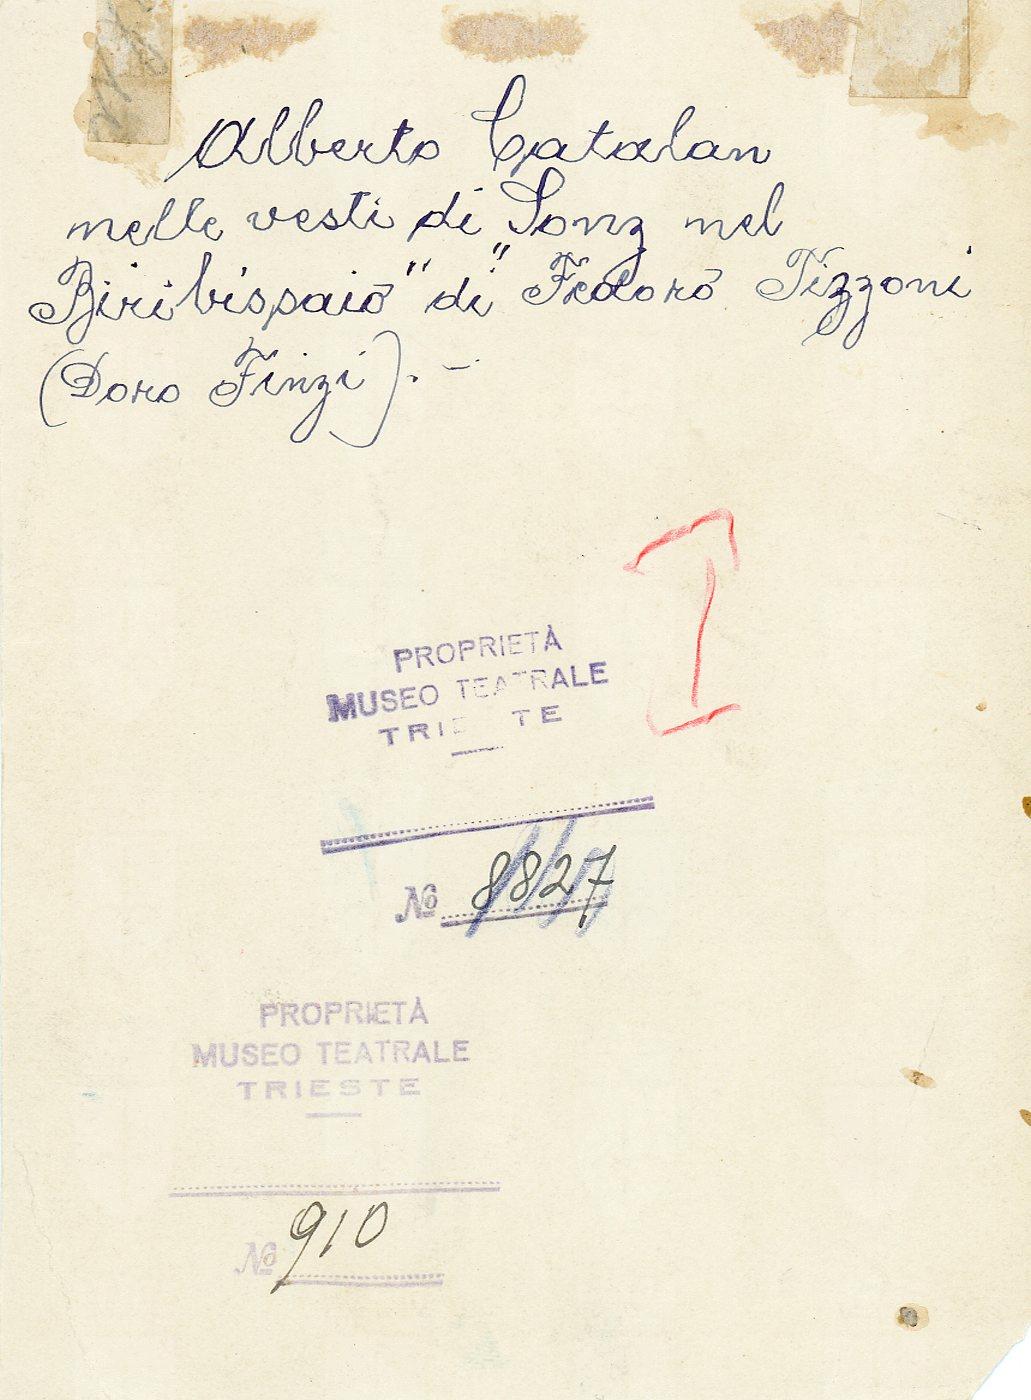 Alberto Catalan
nelle vesti di Sonz nel
"Biribissaio" di Fedoro Tizzoni
(Doro Finzi). -
I
PROPRIETÀ
MUSEO TEATRALE
TRIESTE
No 8827
PROPRIETÀ
MUSEO TEATRALE
TRIESTE
No 910